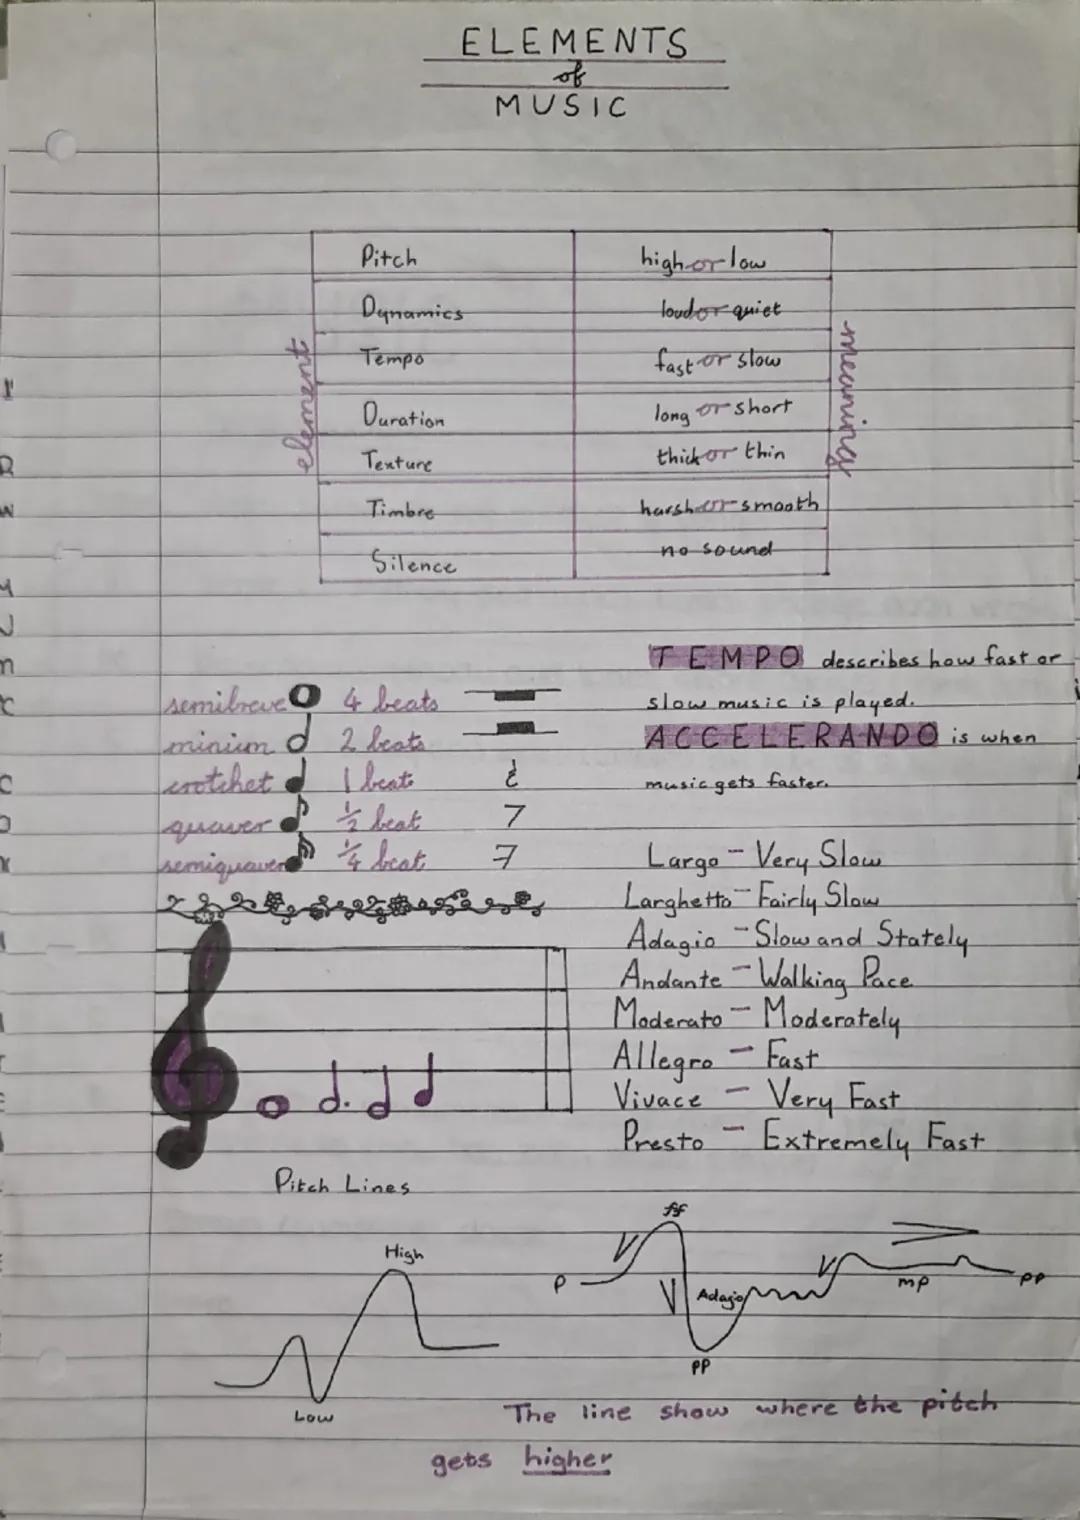 ELEMENTS
of
MUSIC
element
meanings
Pitch high or low
Dynamics loud or quiet
Tempo fast or slow
Duration long or short
Texture thick or thin
Timbre harsh or smooth
Silence no sound
semibreve 4 beats
minium 2 beats
crotchet 1 beat
quaver 1/2 beat
semiquaver 1/4 beat
TEMPO describes how fast or
slow music is played.
ACCELERANDO is when
music gets faster.
Largo - Very Slow
Larghetto - Fairly Slow
Adagio - Slow and Stately
Andante - Walking Pace
Moderato - Moderately
Allegro - Fast
Vivace - Very Fast
Presto - Extremely Fast
Pitch Lines
High
Low
P
ff
Adagio
PP
mp
PP
The line show where the pitch
gets higher